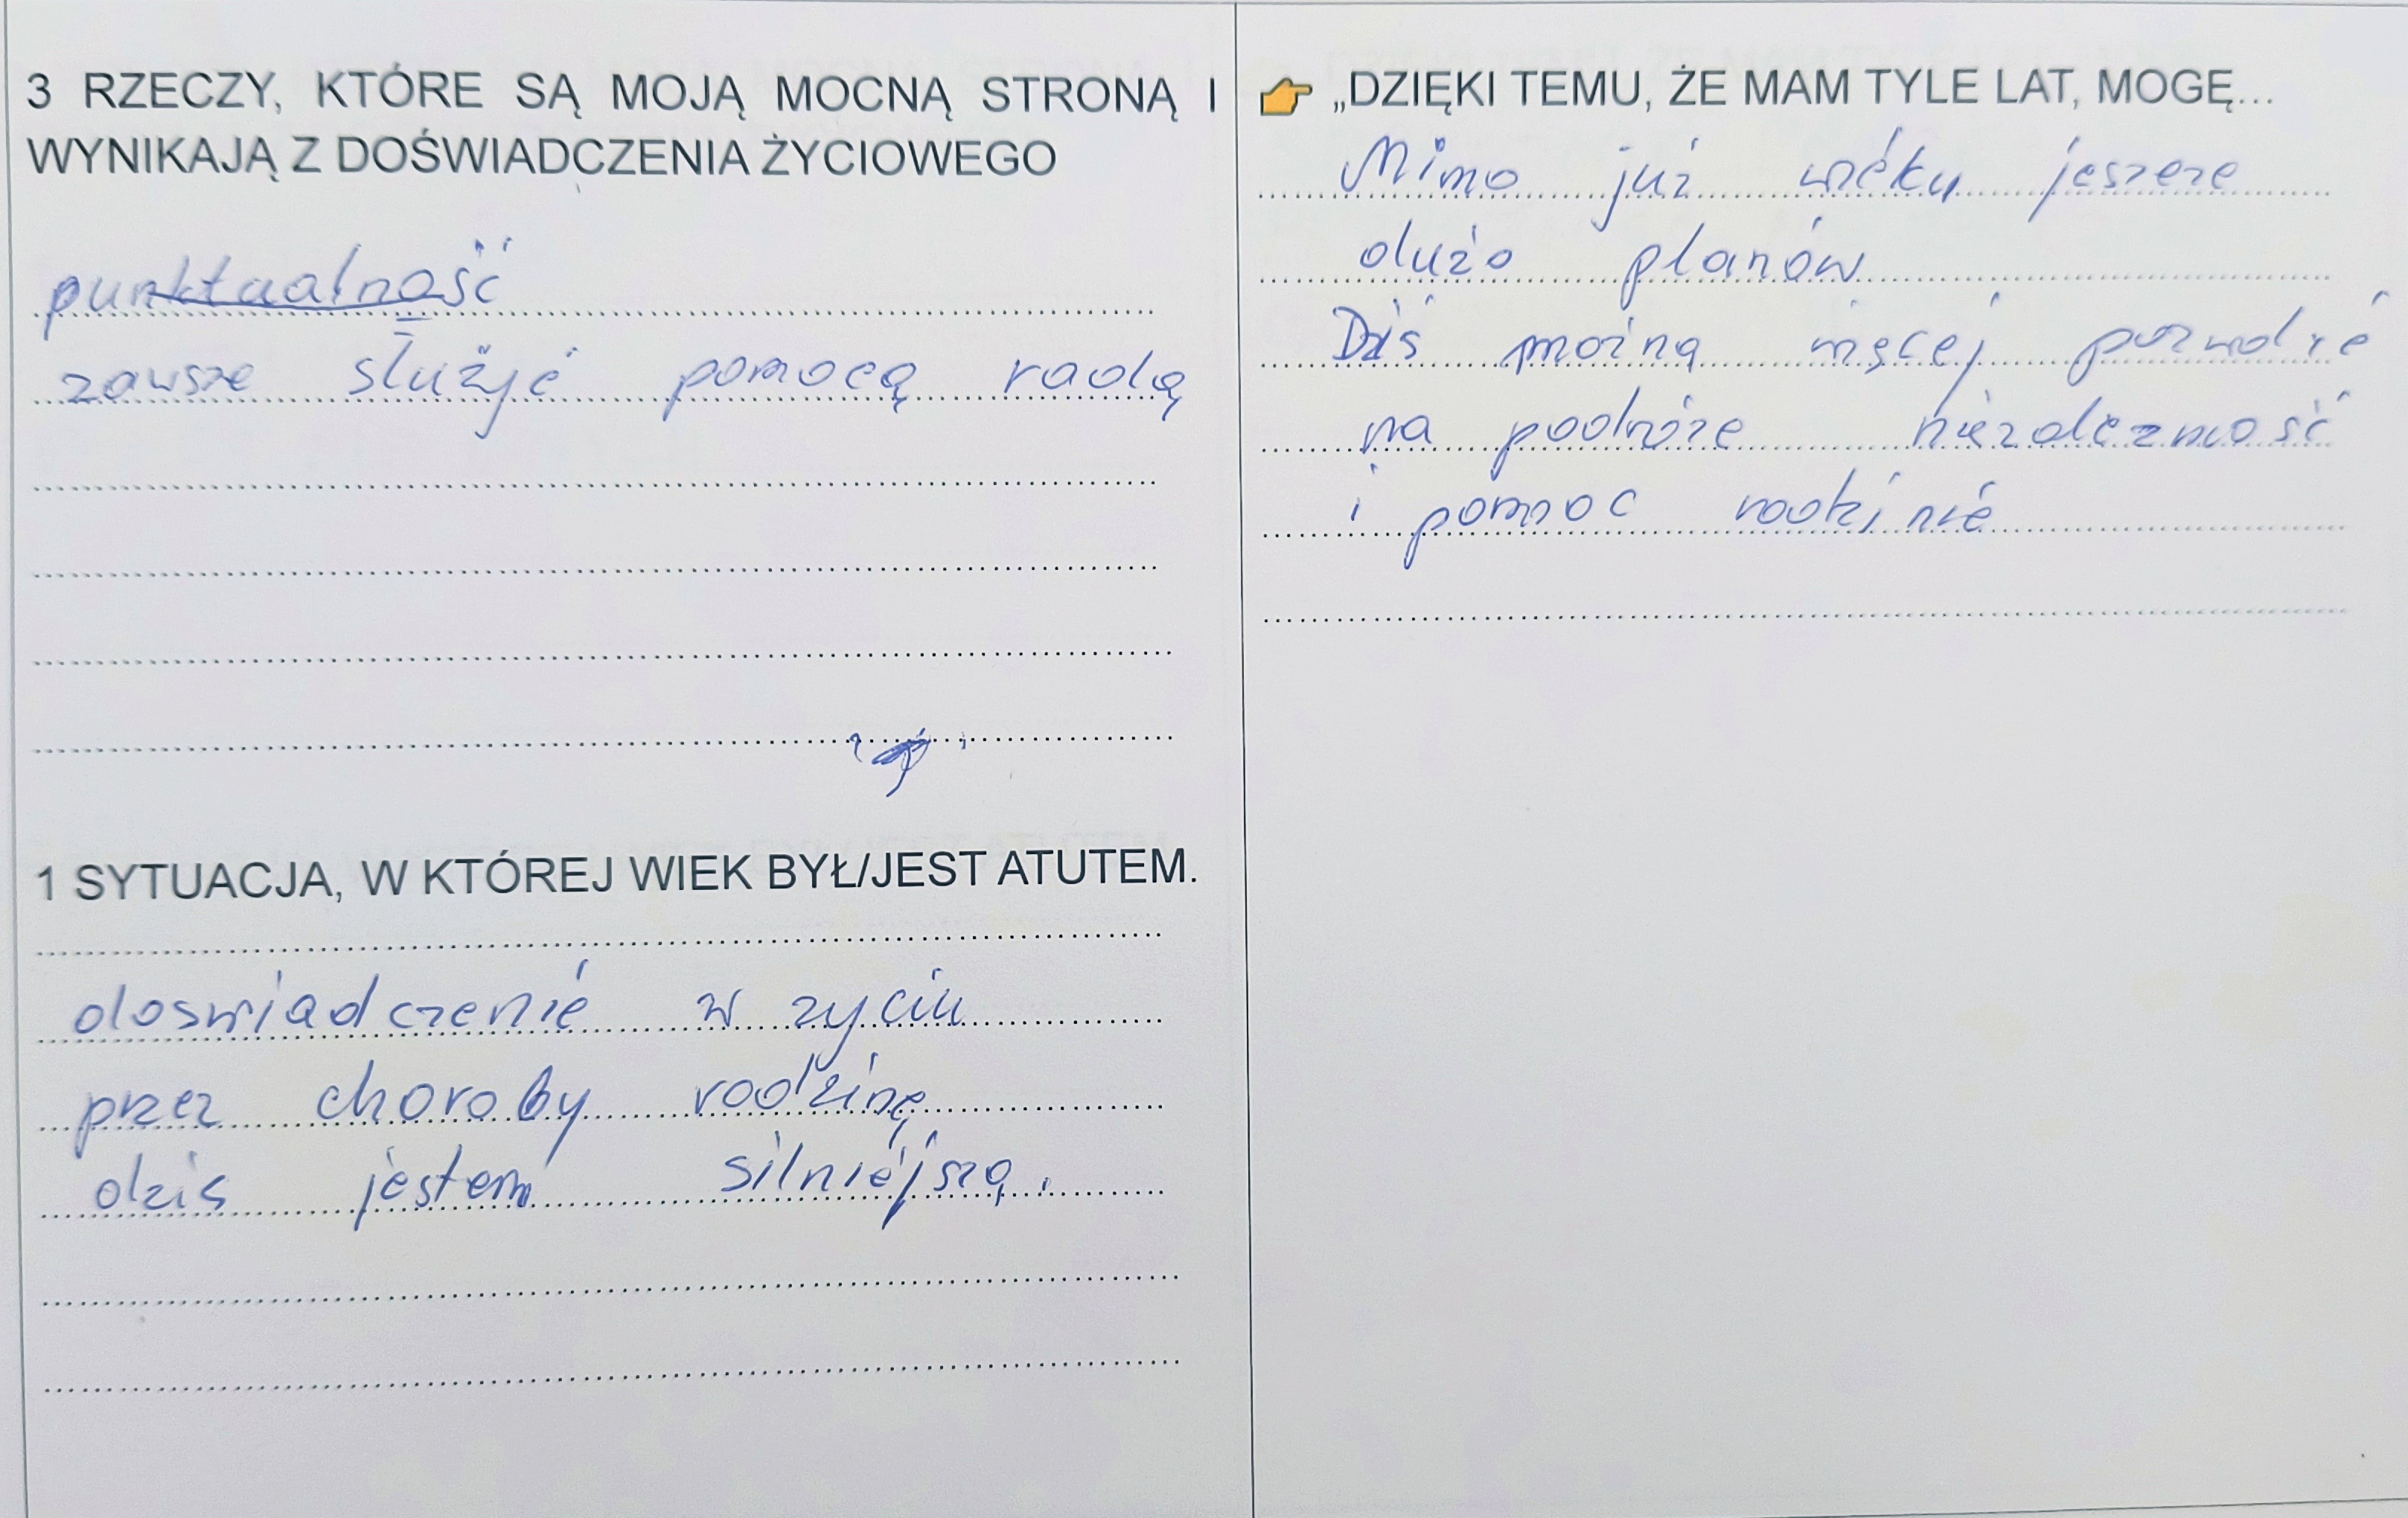 3 RZECZY, KTÓRE SĄ MOJĄ MOCNĄ STRONĄ I
WYNIKAJĄ Z DOŚWIADCZENIA ŻYCIOWEGO
punktualność
zawsze służyć pomocą radą
1 SYTUACJA, W KTÓREJ WIEK BYŁ/JEST ATUTEM.
doswiadczenie w zyciu
przez choroby rodzinę
dzis jestem silniejszą.
👉 „DZIĘKI TEMU, ŻE MAM TYLE LAT, MOGĘ...
Mimo już wieku jeszcze
dużo planów
Dziś można więcej
na podróże niezależność
i pomoc rodzinie